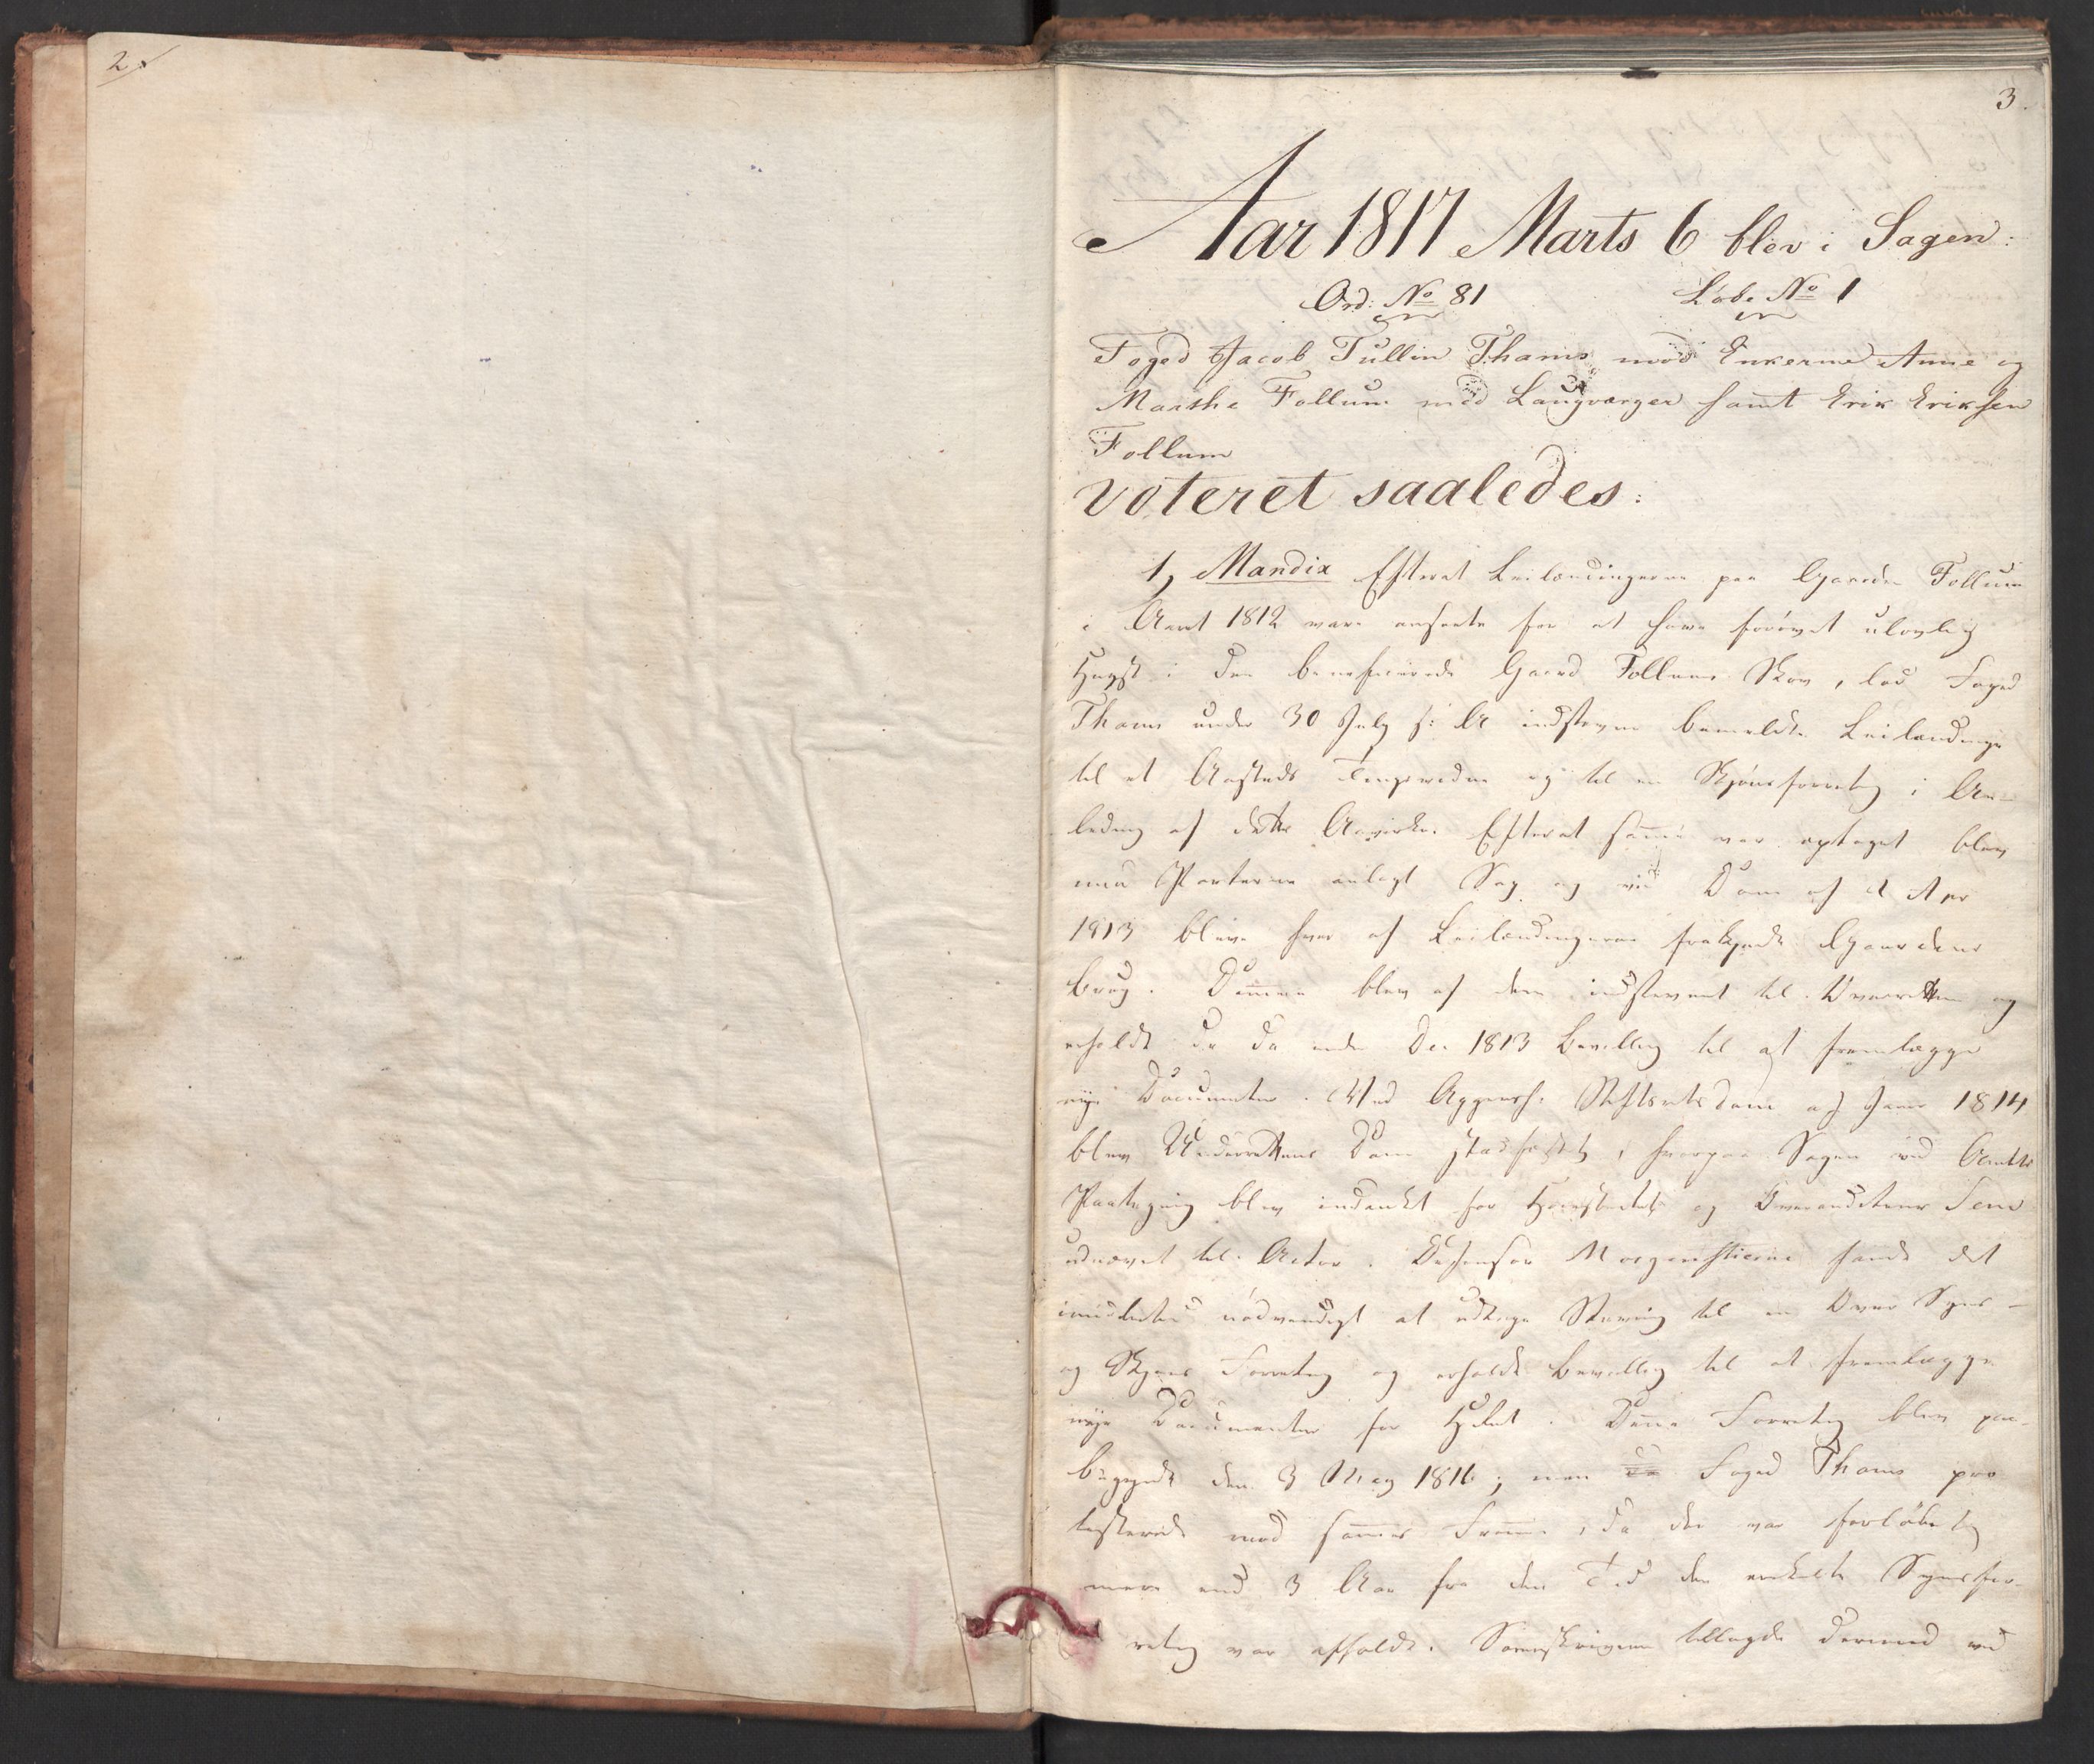 2.
3.
Aar 1817 Marts 6 blev i Sagen:
Ord: No 81 Løbe No 1
Foged Jacob Tullin Thams mod Enkerne Anne og
Marthe Follum med Laugværger samt Erik Eriksen
Follum
voteret saaledes:
1, Mandix Efterat Leilændingerne paa Gaarden Follum
i Aaret 1812 vare anseete for at have forøvet ulovlig
Hugst i den beneficerede Gaard Follums Skov, lod Foged
Thams under 30 July s: A indstevne bemeldte Leilændinge
til et Aasteds Tingsvidne og til en Skjønsforretng i An-
ledng af dette Aavirke. Efterat samme var optaget blev
mod Parterne anlagt Sag og ved Dom af 2 Apr
1813 bleve hver af Leilændingerne frakjendt Gaardens
Brug. Dommen blev af dem indstevnt til Overretten og
erholdt de da under Dec 1813 Bevillng til at fremlægge
nye Documenter. Ved Aggersh. Stiftsrets Dom af Janr 1814
blev Underrettens Dom stadfæstet, hvorpaa Sagen ved Amtets
Paategning blev indanket for Høiesteret og Overauditeur
udnævnt til Actor. Defensor Morgenstierne fandt det
imidlertid nødvendigt at udtage Stevning til en Over Syns-
og Skjøns Forretng og erholdt Bevillng til at fremlægge
nye Documenter for Hrtet. Denne Forretng blev paa-
begyndt den 3 May 1816; men da Foged Thams pro
testerede mod sammes Fremme, da der var forløbet
mere end 3 Aar fra den Tid den enkelte Synsfor-
retng var afholdt. Sorenskriveren tillagde dermed ved